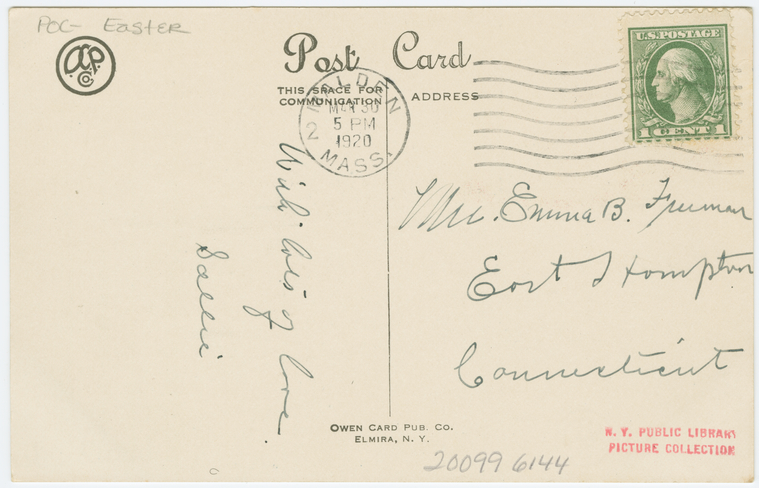 POC- Easter
Post Card
THIS SPACE FOR
COMMUNICATION
ADDRESS
MALDEN
MAR 30
5 PM
1920
2 MASS.
U.S. POSTAGE
1 CENT 1
With lots of love.
Sallie
Mrs. Emma B. Freeman
East Hampton
Connecticut
OWEN CARD PUB. CO.
ELMIRA, N. Y.
N. Y. PUBLIC LIBRARY
PICTURE COLLECTION
20099 6144